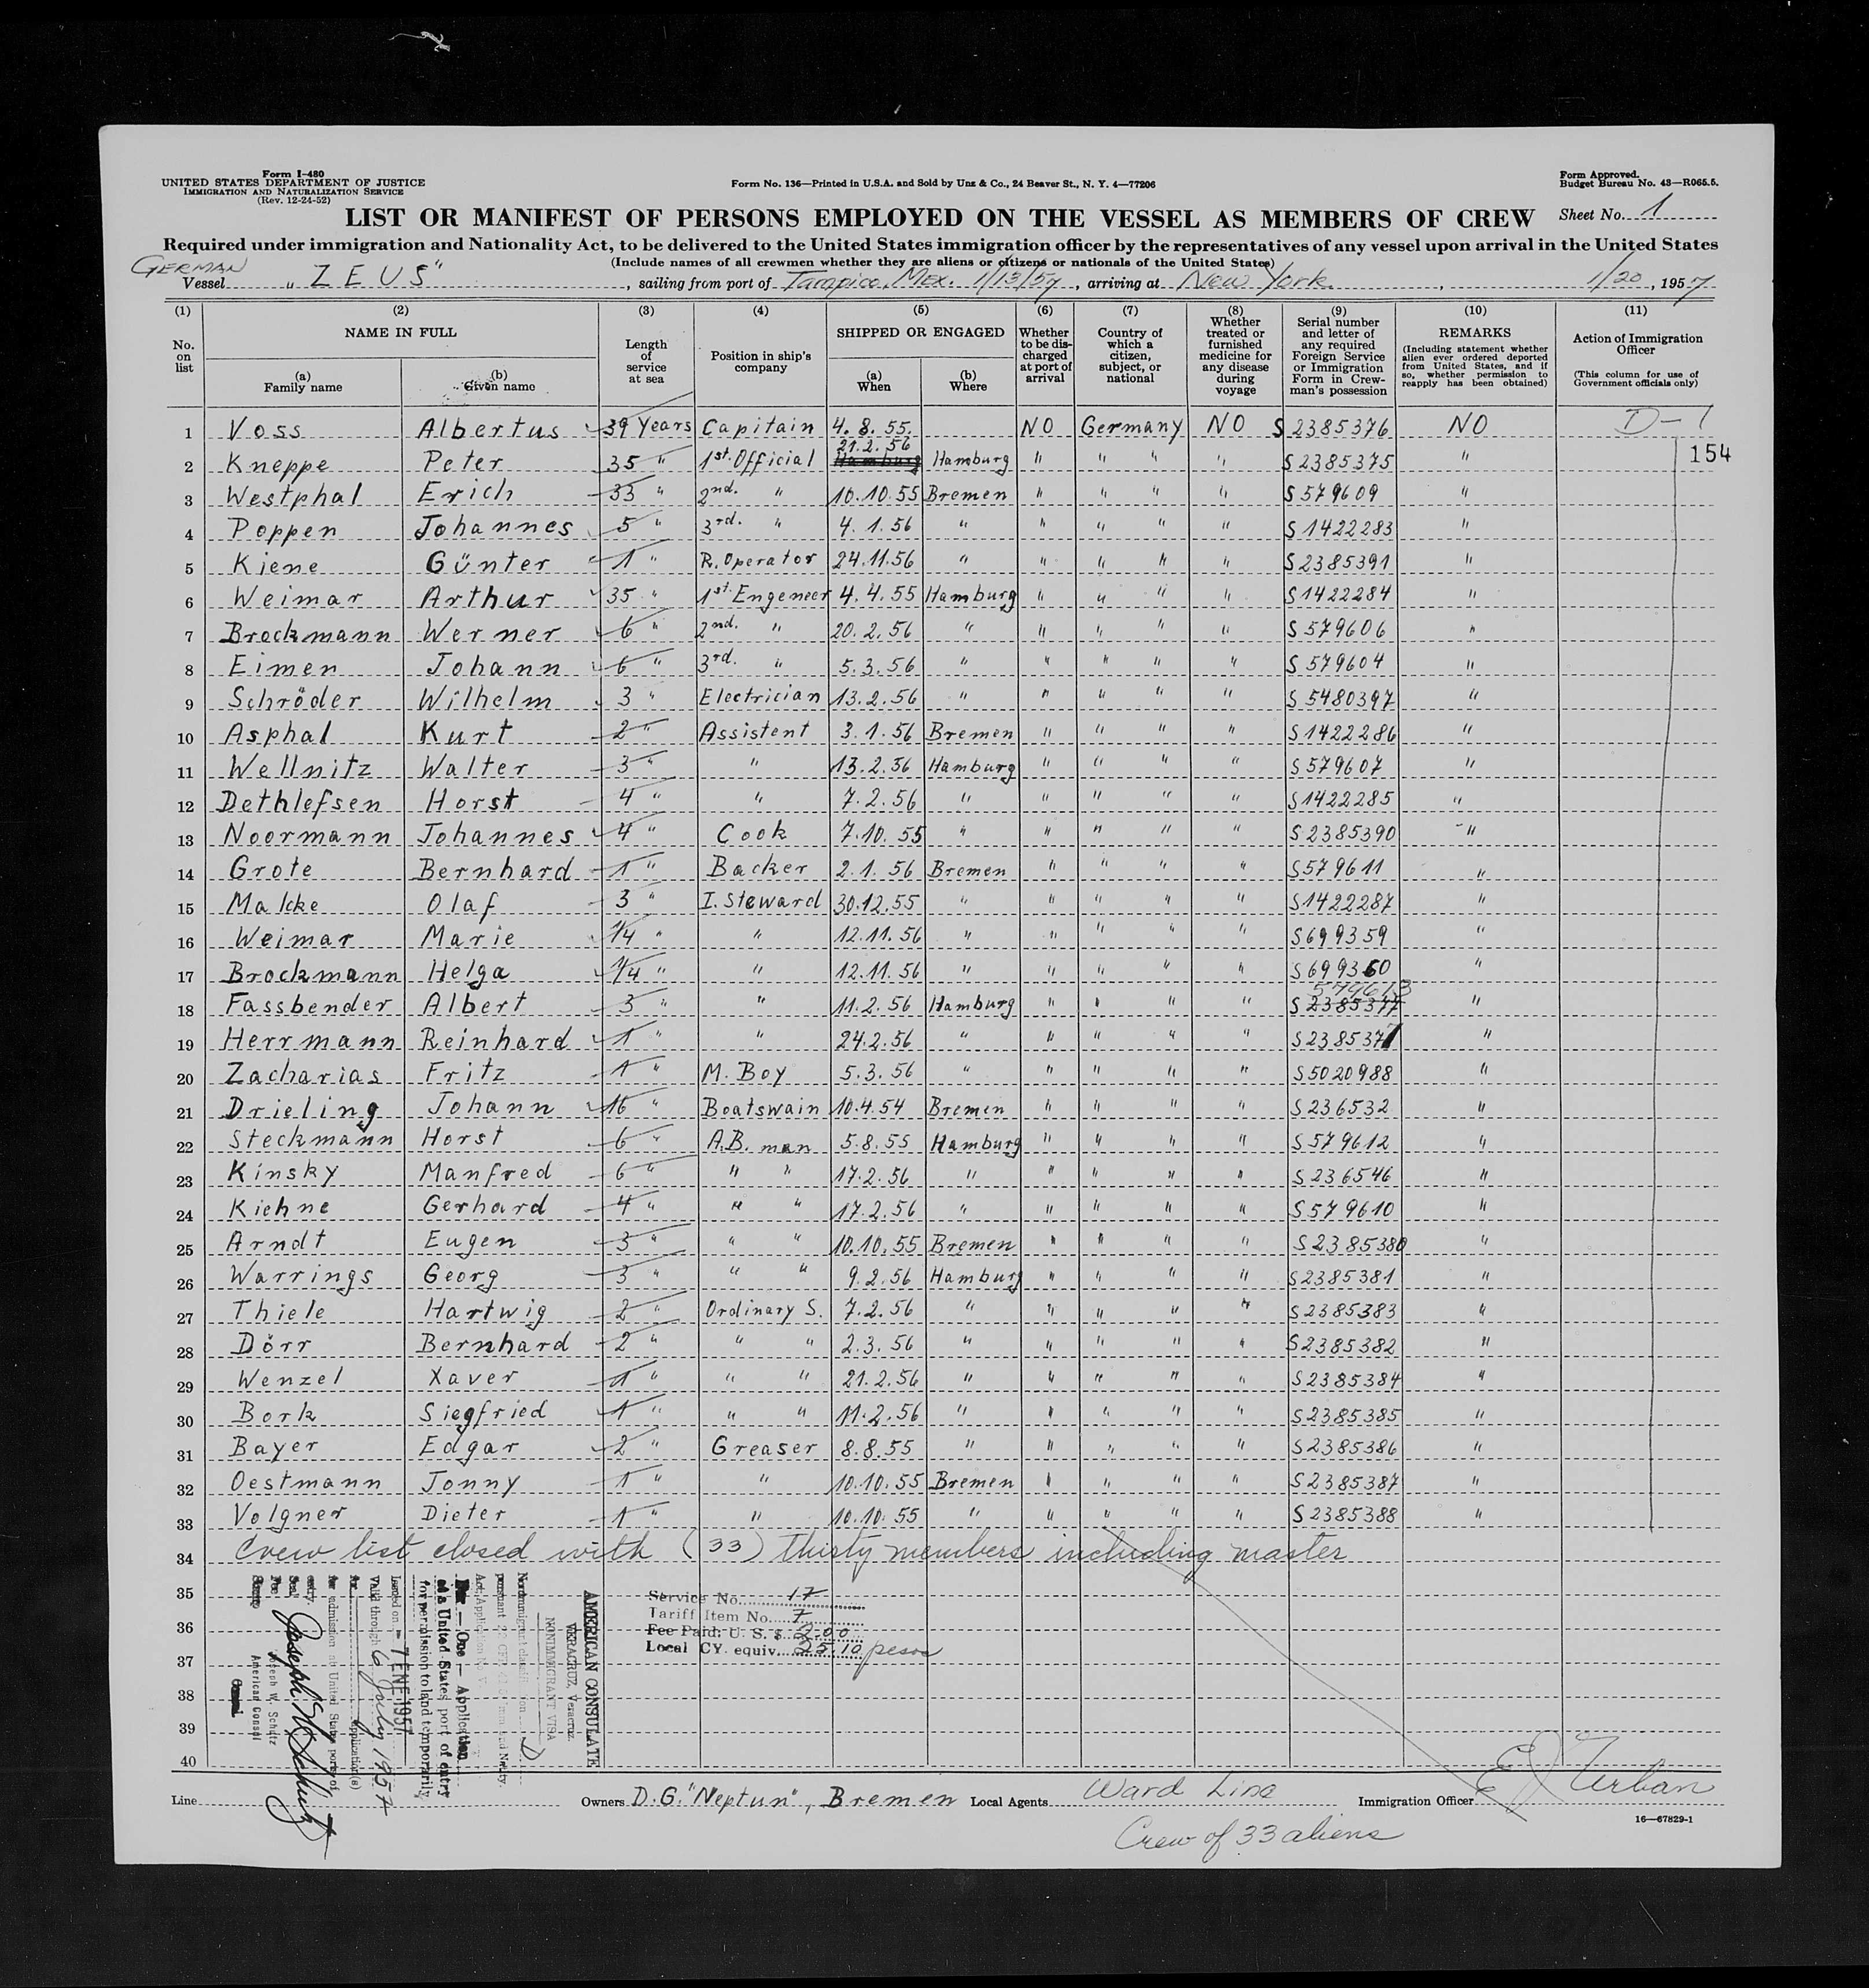 Form I-480
UNITED STATES DEPARTMENT OF JUSTICE
IMMIGRATION AND NATURALIZATION SERVICE
(Rev. 12-24-52)
Form No. 136—Printed in U.S.A. and Sold by Unz & Co., 24 Beaver St., N. Y. 4—77206
Form Approved.
Budget Bureau No. 43—R065.5.
LIST OR MANIFEST OF PERSONS EMPLOYED ON THE VESSEL AS MEMBERS OF CREW
Sheet No. 1
Required under immigration and Nationality Act, to be delivered to the United States immigration officer by the representatives of any vessel upon arrival in the United States
(Include names of all crewmen whether they are aliens or citizens or nationals of the United States)
GERMAN
Vessel "ZEUS", sailing from port of Tampico Mex. 1/13/57, arriving at New York, 1/20, 1957
(1) No. on list
(2) NAME IN FULL
(a) Family name
(b) Given name
(3) Length of service at sea
(4) Position in ship's company
(5) SHIPPED OR ENGAGED
(a) When
(b) Where
(6) Whether to be discharged at port of arrival
(7) Country of which a citizen, subject, or national
(8) Whether treated or furnished medicine for any disease during voyage
(9) Serial number and letter of any required Foreign Service or Immigration Form in Crewman's possession
(10) REMARKS
(Including statement whether alien ever ordered deported from United States, and if so, whether permission to reapply has been obtained)
(11) Action of Immigration Officer
(This column for use of Government officials only)
1 Voss Albertus 39 Years Capitain 4.8.55. NO Germany NO S 2385376 NO D-1
154
2 Kneppe Peter 35 " 1st. Official 21.2.56 Hamburg Hamburg " " " " S 2385375 "
3 Westphal Erich 33 " 2nd. " 10.10.55 Bremen " " " " S 579609 "
4 Poppen Johannes 5 " 3rd. " 4.1.56 " " " " " S 1422283 "
5 Kiene Günter 1 " R. Operator 24.11.56 " " " " " S 2385391 "
6 Weimar Arthur 35 " 1st Engeneer 4.4.55 Hamburg " " " " S 1422284 "
7 Brockmann Werner 6 " 2nd. " 20.2.56 " " " " " S 579606 "
8 Eimen Johann 6 " 3rd. " 5.3.56 " " " " " S 579604 "
9 Schröder Wilhelm 3 " Electrician 13.2.56 " " " " " S 5480397 "
10 Asphal Kurt 2 " Assistent 3.1.56 Bremen " " " " S 1422286 "
11 Wellnitz Walter 3 " " 13.2.56 Hamburg " " " " S 579607 "
12 Dethlefsen Horst 4 " " 7.2.56 " " " " " S 1422285 "
13 Noormann Johannes 4 " Cook 7.10.55 " " " " " S 2385390 "
14 Grote Bernhard 1 " Backer 2.1.56 Bremen " " " " S 579611 "
15 Malcke Olaf 3 " I. Steward 30.12.55 " " " " " S 1422287 "
16 Weimar Marie 1/4 " " 12.11.56 " " " " " S 699359 "
17 Brockmann Helga 1/4 " " 12.11.56 " " " " " S 699360 "
18 Fassbender Albert 3 " " 11.2.56 Hamburg " " " " 579613 S 2385377 "
19 Herrmann Reinhard 1 " " 24.2.56 " " " " " S 2385371 "
20 Zacharias Fritz 1 " M. Boy 5.3.56 " " " " " S 5020988 "
21 Drieling Johann 16 " Boatswain 10.4.54 Bremen " " " " S 236532 "
22 Steckmann Horst 6 " A.B. man 5.8.55 Hamburg " " " " S 579612 "
23 Kinsky Manfred 6 " " " 17.2.56 " " " " " S 236546 "
24 Kiehne Gerhard 4 " " " 17.2.56 " " " " " S 579610 "
25 Arndt Eugen 3 " " " 10.10.55 Bremen " " " " S 2385380 "
26 Warrings Georg 3 " " " 9.2.56 Hamburg " " " " S 2385381 "
27 Thiele Hartwig 2 " Ordinary S. 7.2.56 " " " " " S 2385383 "
28 Dörr Bernhard 2 " " " 2.3.56 " " " " " S 2385382 "
29 Wenzel Xaver 1 " " " 21.2.56 " " " " " S 2385384 "
30 Bork Siegfried 1 " " " 11.2.56 " " " " " S 2385385 "
31 Bayer Edgar 2 " Greaser 8.8.55 " " " " " S 2385386 "
32 Oestmann Jonny 1 " " 10.10.55 Bremen " " " " S 2385387 "
33 Volgner Dieter 1 " " 10.10.55 " " " " " S 2385388 "
34 Crew list closed with (33) thirty members including master
35
36
37
38
39
40
AMERICAN CONSULATE
VERACRUZ, Veracruz.
NONIMMIGRANT VISA
Nonimmigrant classification D
One — Application
at a United States port of entry
for permission to land temporarily
Issued on 7 ENE 1957
Valid through 6 July 1957
for application(s)
for admission at United States ports of entry
Joseph W. Schutz
Joseph W. Schutz
American Consul
Service No. 17
Tariff Item No. 7
Fee Paid: U. S. $ 2.00
Local CY. equiv. 25.10 pesos
Line
Owners D.G. "Neptun", Bremen
Local Agents Ward Line
Immigration Officer E J Urban
16—67829-1
Crew of 33 aliens